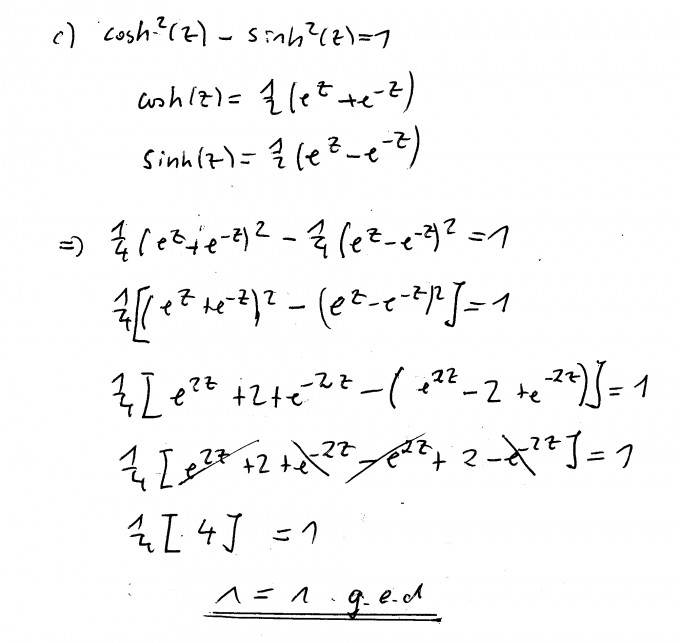 c) cosh²(z) - sinh²(z)=1
cosh(z)= 1/2 (e^z +e^-z)
sinh(z)= 1/2 (e^z -e^-z)
=> 1/4 (e^z+e^-z)² - 1/4 (e^z-e^-z)² =1
1/4[(e^z +e^-z)² - (e^z-e^-z)²]=1
1/4 [ e^2z +2+e^-2z -( e^2z -2 +e^-2z)]= 1
1/4 [e^2z +2 +e^-2z -e^2z + 2 -e^-2z]= 1
1/4 [ 4] =1
1 = 1 . q.e.d